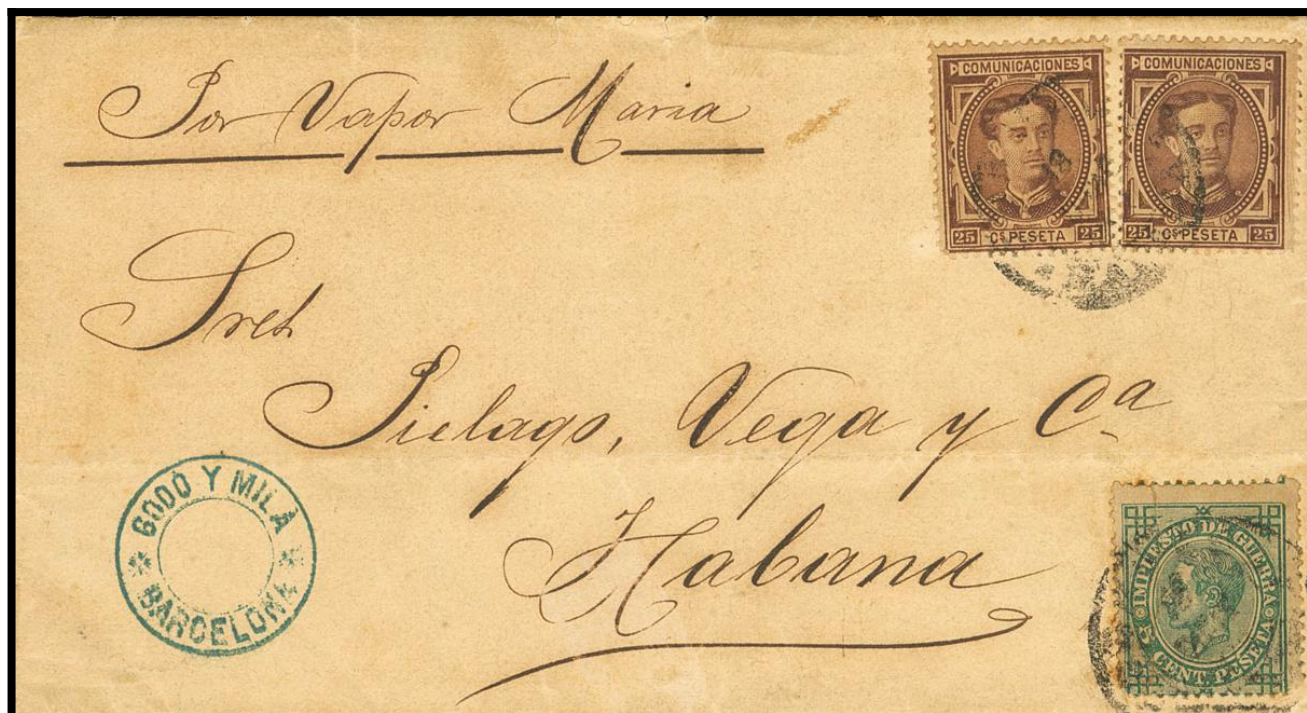 Por Vapor Maria
COMUNICACIONES
25 Cs PESETA 25
COMUNICACIONES
25 Cs PESETA 25
Sres
Pielago, Vega y Ca
Habana
GODÓ Y MILÁ
BARCELONA
IMPUESTO DE GUERRA
5 CENT. PESETA 5